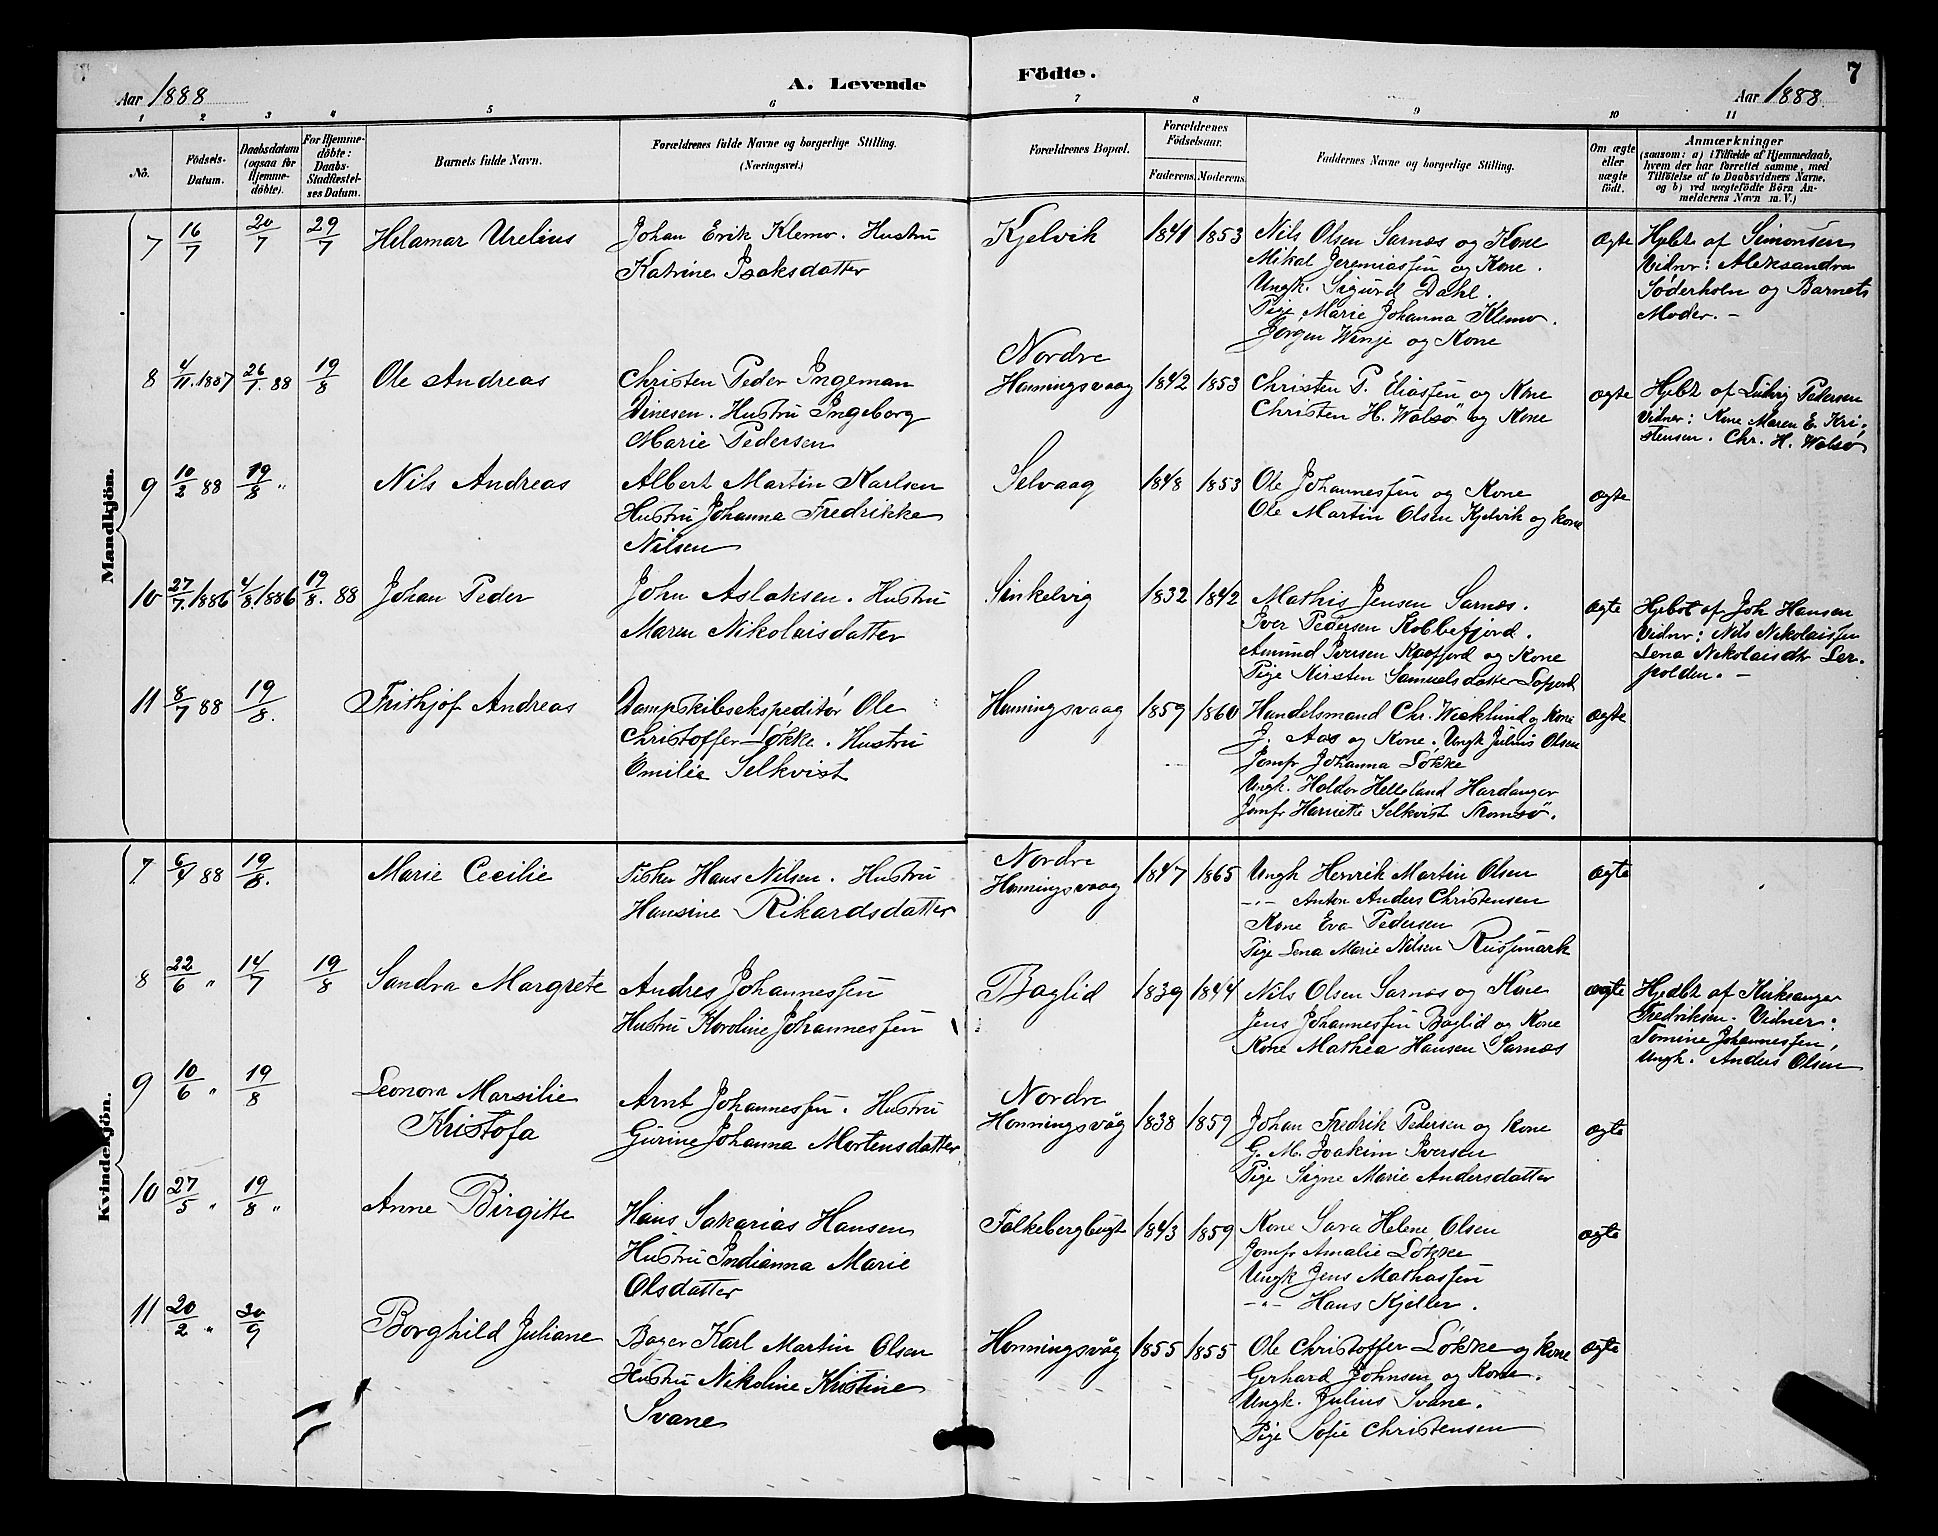 Aar 1888 A. Levende Födte. Aar 1888. 7
1 2 3 4 5 6 7 8 9 10 11
No. Födsels-Datum. Daabsdatum (ogsaa for Hjemme-döbte). For Hjemme-döbte: Daabs-Stadfæstel-ses Datum. Barnets fulde Navn. Forældrenes fulde Navne og borgerlige Stilling. (Næringsvei.) Forældrenes Bopæl. Forældrenes Födselsaar. Faderens. Moderens. Faddernes Navne og borgerlige Stilling. Om ægte eller uægte födt. Anmærkninger (saasom: a) i Tilfælde af Hjemmedaab, hvem der har forrettet samme, med Tilföielse af to Daabsvidners Navne, og b) ved uægtefödte Börn An-melderens Navn m. V.)
Mandkjön.
7 16/7 20/7 29/7 Helamar Urelius
Johan Erik Klemo. Hustru
Katrine Isaksdatter
Kjelvik 1841 1853
Nils Olsen Sarnæs og Kone
Mikal Jeremiassen og Kone.
Ungk. Sigurd Dahl.
Pige Marie Johanna Klemo.
Jørgen Winje og Kone
ægte
Hjdbt af Simonsen
Vidner: Aleksandra
Søderholm og Barnets
Moder. –
8 4/11. 1887 26/1. 88 19/8 Ole Andreas
Christen Peder Ingeman
Dinesen. Hustru Ingeborg
Marie Pedersen
Nordre
Honningsvaag 1842 1853
Christen P. Eliassen og Kone
Christen H. Walsö og Kone
ægte
Hjdbt af Ludvig Pedersen
Vidner: Kone Maren E. Kri-
stensen. Chr. H. Walsø
9 10/2 88 19/8 " Nils Andreas
Albert Martin Karlsen
Hustru Johanna Fredrikke
Nilsen
Selvaag 1848 1853
Ole Johannessen og Kone
Ole Martin Olsen Kjelvik og Kone
ægte
10 27/7. 1886 4/8. 1886 19/8. 88 Johan Peder
John Aslaksen. Hustru
Maren Nikolaisdatter
Sinkelvig 1832 1842
Mathis Jensen Sarnæs.
Iver Pedersen Kobbefjord.
Amund Iversen Kaafjord og Kone
Pige Kirsten Samuelsdatter
ægte
Hjdbt af Joh Hansen
Vidner: Nils Nikolaissen
Lena Nikolaisdtr Ler-
polden. –
11 8/7 88 19/8. Frithjof Andreas
Dampskibsekspeditør Ole
Christoffer Løkke. Hustru
Emilie Selkvist
Honningsvaag 1859 1860
Handelsmand Chr. Wecklund og Kone
J. Aas og Kone. Ungk Julius Olsen
Jomfr Johanna Løkke
Ungk. Haldor Helleland Hardanger
Jomfr Harriette Selkvist Tromsö.
ægte
Kvindekjön.
7. 6/4 88 19/8. Marie Cecilie
Fisker Hans Nilsen. Hustru
Hansine Rikardsdatter
Nordre
Honningsvaag 1847 1865
Ungk Henrik Martin Olsen
–"– Anton Anders Christensen
Kone Eva Pedersen
Pige Lena Marie Nilsen Russemark
ægte
8 22/6 " 14/7 19/8 Sandra Margrete
Andres Johannessen
Hustru Karoline Johannessen
Baglid 1839 1844
Nils Olsen Sarnæs og Kone
Jens Johannessen Baglid og Kone
Kone Mathea Hansen Sarnæs
ægte
Hjdbt af Kirkesanger
Fredriksen. Vidner:
Tomine Johannessen,
Ungk. Anders Olsen
9 10/6 " 19/8 Leonora Marsilie
Kristofa
Arnt Johannessen. Hustru
Gurine Johanna Mortensdatter
Nordre
Honningsvåg 1838 1859
Johan Fredrik Pedersen og Kone
G. M. Joakim Iversen
Pige Signe Marie Andersdatter
ægte
10 27/5 " 19/8 " Anne Birgitte
Hans Sakarias Hansen
Hustru Indianna Marie
Olsdatter
Falkebergbugt 1843 1859
Kone Sara Helene Olsen
Jomfr Amalie Løkke
Ungk Jens Mathassen
–"– Hans Kjeller.
ægte
11 20/2 " 30/9 Borghild Juliane
Bager Karl Martin Olsen
Hustru Nikoline Kristine
Svane
Honningsvåg 1855 1855
Ole Christoffer Løkke og Kone
Gerhard Johnsen og Kone.
Ungk. Julius Svane.
Pige Sofie Christensen
ægte